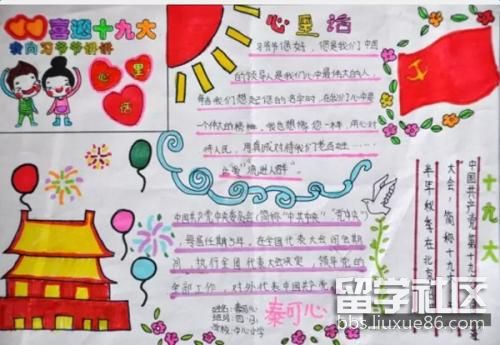 喜迎十九大
我向习爷爷讲讲
心里
话
心里话
习爷爷您好，您是我们中国
的领导人是我们心中最伟大的人，
每当我们想起您的名字时，在我们心中是
一个伟大的榜样，我也想像您一样，用心对
待人民，用真诚对待我们老百姓……
中国共产党中央委员会简称"中共中央""党中央"，
每届任期5年，在全国代表大会闭会期
间，执行全国代表大会决定，领导党的
全部工作，对外代表中国共产党
姓名：秦可心
学校：中心小学
秦可心
十九大
中国共产党第十九
大会，简称十九
半年秋季在北京
留学社区
bbs.liuxue86.com